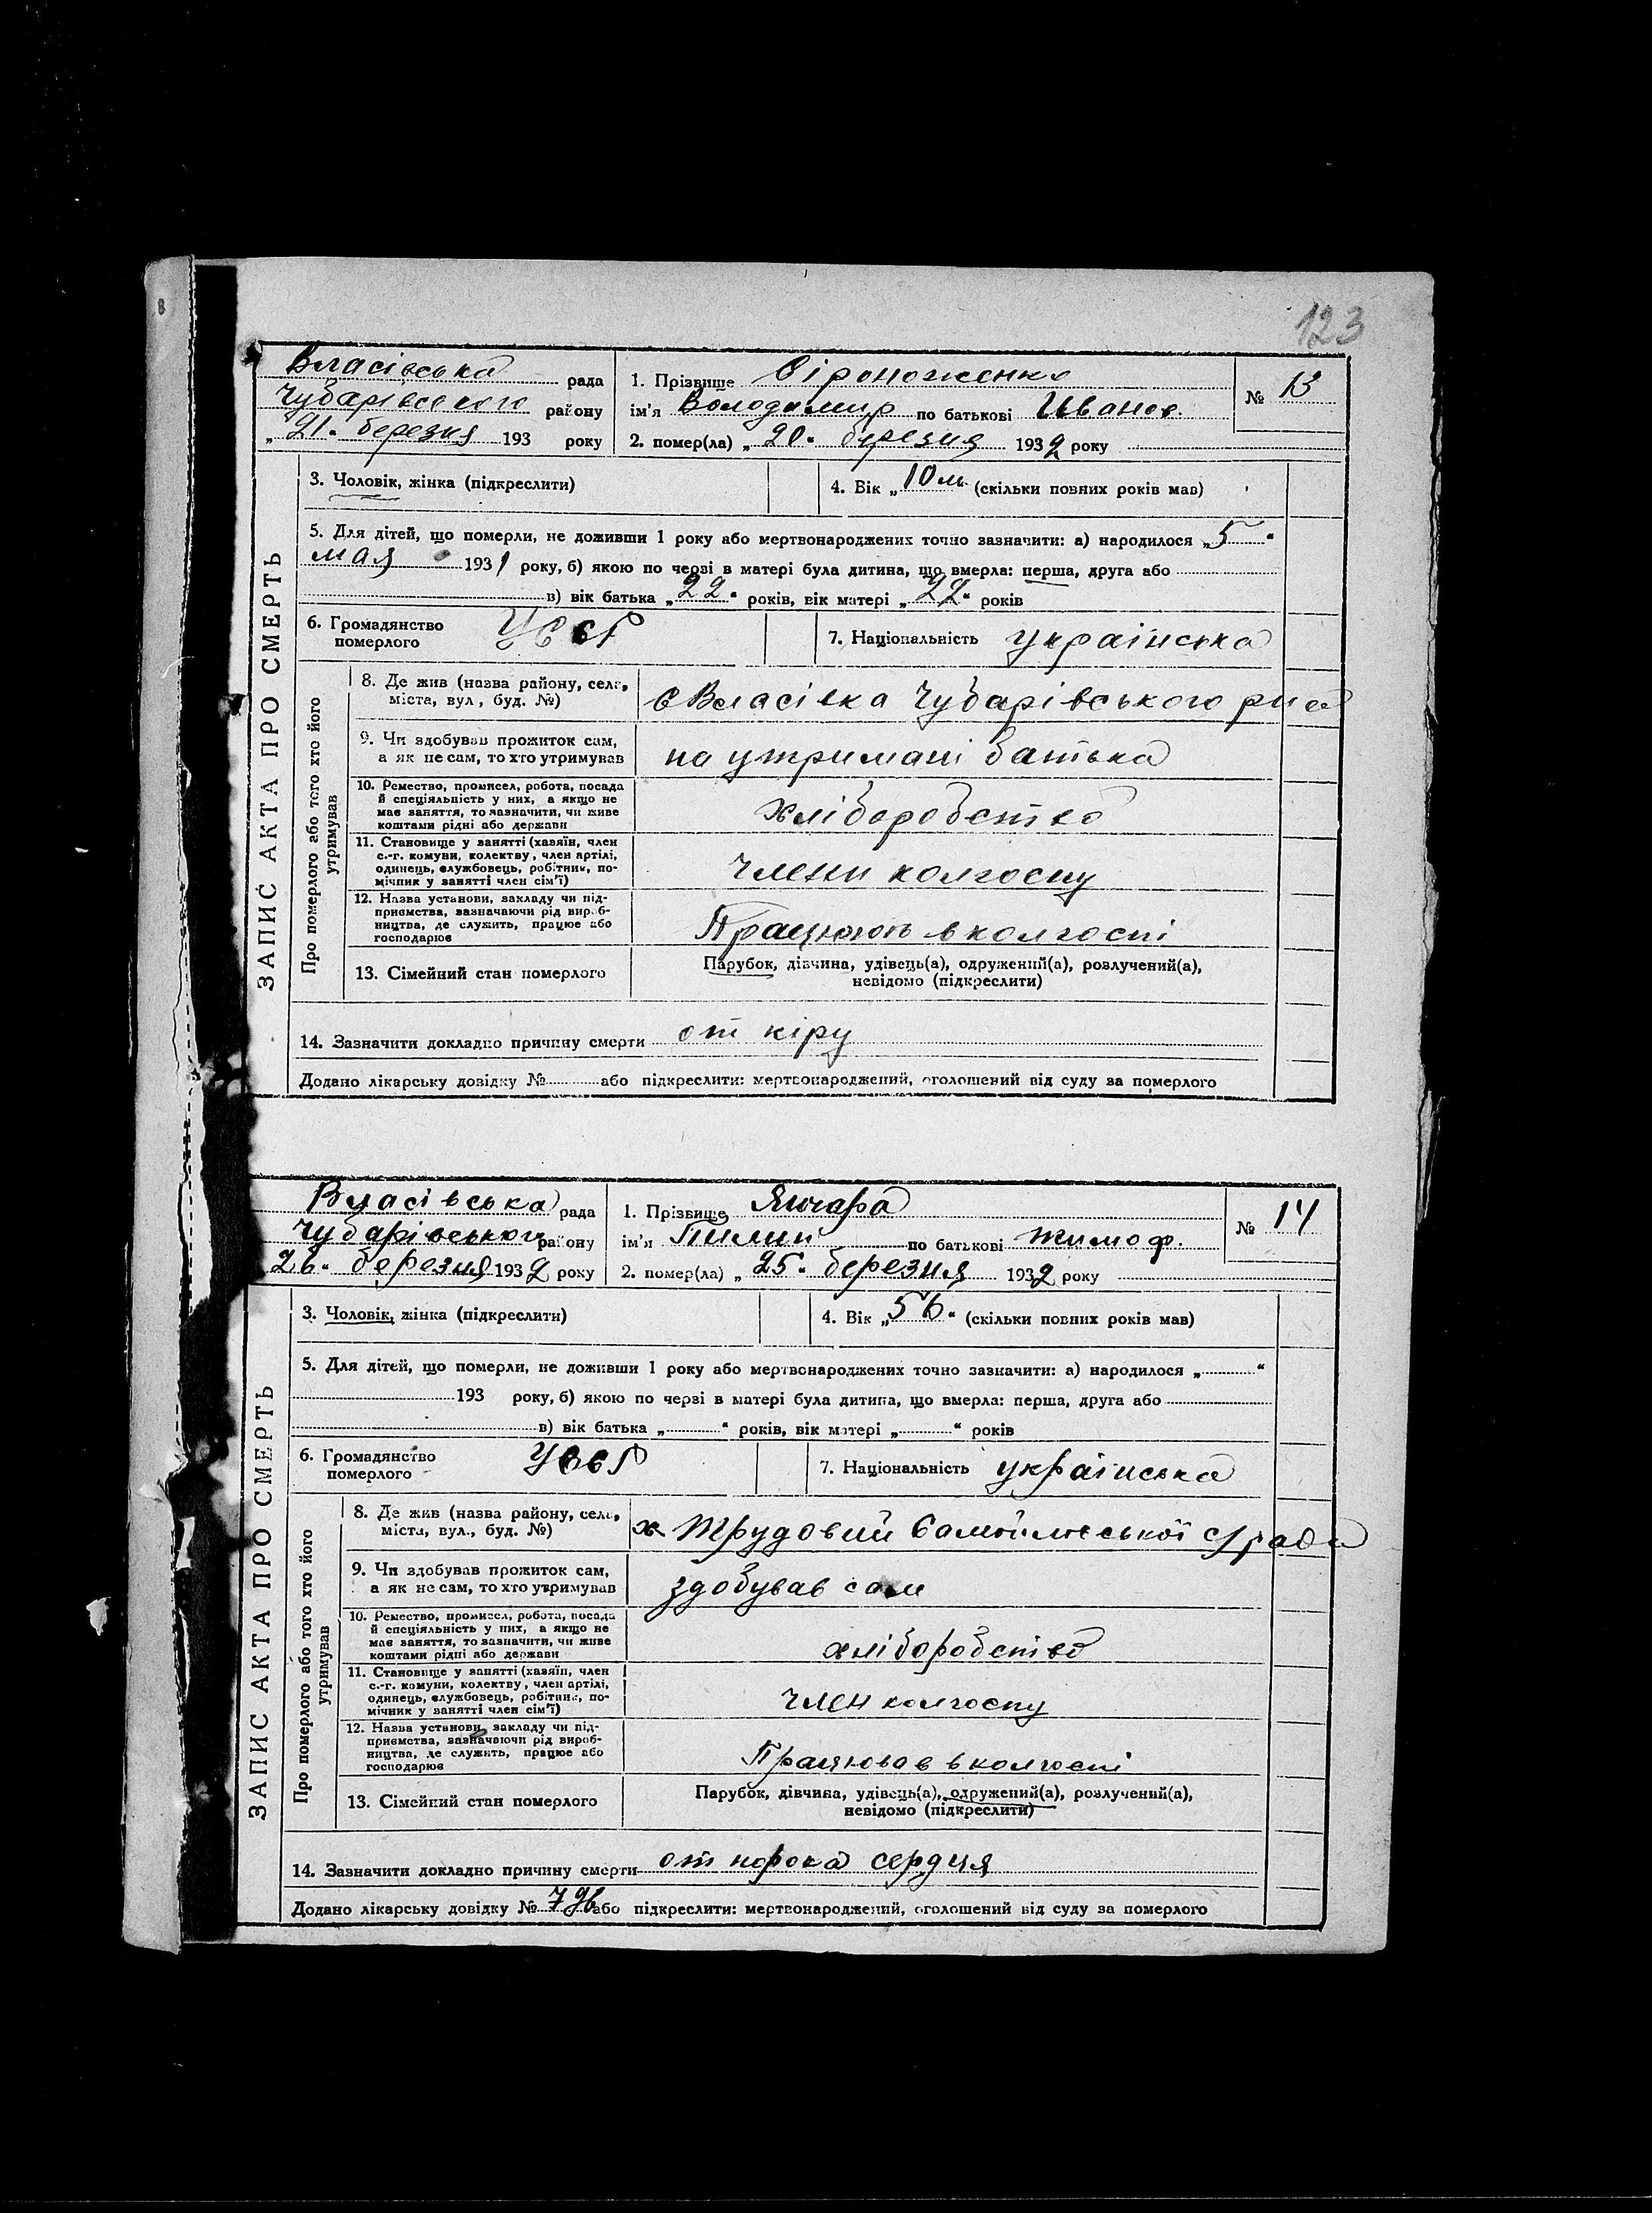 123
Власівська рада
Чубарівського району
„21“ березня 193 року
1. Прізвище Сіроноженко
ім'я Володимир по батькові Иванов.
2. помер(ла) „20“ березня 1932 року
№ 13
ЗАПИС АКТА ПРО СМЕРТЬ
3. Чоловік, жінка (підкреслити)
4. Вік „10 м“ (скільки повних років мав)
5. Для дітей, що померли, не доживши 1 року або мертвонароджених точно зазначити: а) народилося „5“
мая 1931 року, б) якою по черзі в матері була дитина, що вмерла: перша, друга або
в) вік батька „22“ років, вік матері „22“ років
6. Громадянство
померлого
УССР
7. Національність українська
Про померлого або того хто його
утримував
8. Де жив (назва району, села,
міста, вул, буд. №)
с Власівка Чубарівського
9. Чи здобував прожиток сам,
а як не сам, то хто утримував
на утримані батька
10. Ремество, промисел, робота, посада
й спеціяльність у них, а якщо не
має заняття, то зазначити, чи живе
коштами рідні або держави
хліборобство
11. Становище у занятті (хазяїн, член
с.-г. комуни, колектву, член артілі,
одинець, службовець, робітник, по-
мічник у занятті член сім'ї)
члени колгоспу
12. Назва установи, закладу чи під-
приємства, зазначаючи рід вироб-
ництва, де служить, працює або
господарює
Працюють в колгоспі
13. Сімейний стан померлого
Парубок, дівчина, удівець(а), одружений(а), розлучений(а),
невідомо (підкреслити)
14. Зазначити докладно причину смерти от кіру
Додано лікарську довідку № або підкреслити: мертвонароджений, оголошений від суду за померлого
Власівська рада
Чубарівського району
26“ березня 1932 року
1. Прізвище Янчара
ім'я Пилип по батькові Тимоф.
2. помер(ла) „25“ березня 1932 року
№ 14
ЗАПИС АКТА ПРО СМЕРТЬ
3. Чоловік, жінка (підкреслити)
4. Вік „56“ (скільки повних років мав)
5. Для дітей, що померли, не доживши 1 року або мертвонароджених точно зазначити: а) народилося „ “
193 року, б) якою по черзі в матері була дитина, що вмерла: перша, друга або
в) вік батька „ “ років, вік матері „ “ років
6. Громадянство
померлого
УССР
7. Національність українська
Про померлого або того хто його
утримував
8. Де жив (назва району, села,
міста, вул., буд. №)
х Трудовий
9. Чи здобував прожиток сам,
а як не сам, то хто утримував
здобував сам
10. Ремество, промисел, робота, посада
й спеціяльність у них, а якщо не
має заняття, то зазначити, чи живе
коштами рідні або держави
хліборобство
11. Становище у занятті (хазяїн, член
с.-г. комуни, колектву, член артілі,
одинець, службовець, робітник, по-
мічник у занятті член сім'ї)
член колгоспу
12. Назва установи, закладу чи під-
приємства, зазначаючи рід вироб-
ництва, де служить, працює або
господарює
Працював в колгоспі
13. Сімейний стан померлого
Парубок, дівчина, удівець(а), одружений(а), розлучений(а),
невідомо (підкреслити)
14. Зазначити докладно причину смерти от порока сердця
Додано лікарську довідку № або підкреслити: мертвонароджений, оголошений від суду за померлого